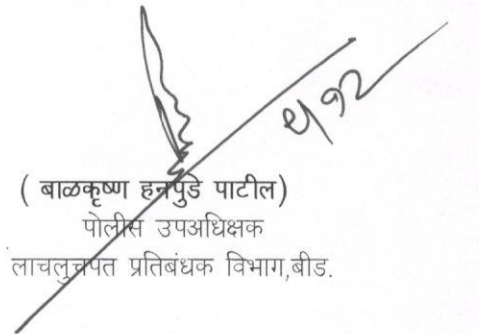 ( बाळकृष्ण हनपुडे पाटील)
पोलीस उपअधिक्षक
लाचलुचपत प्रतिबंधक विभाग,बीड.